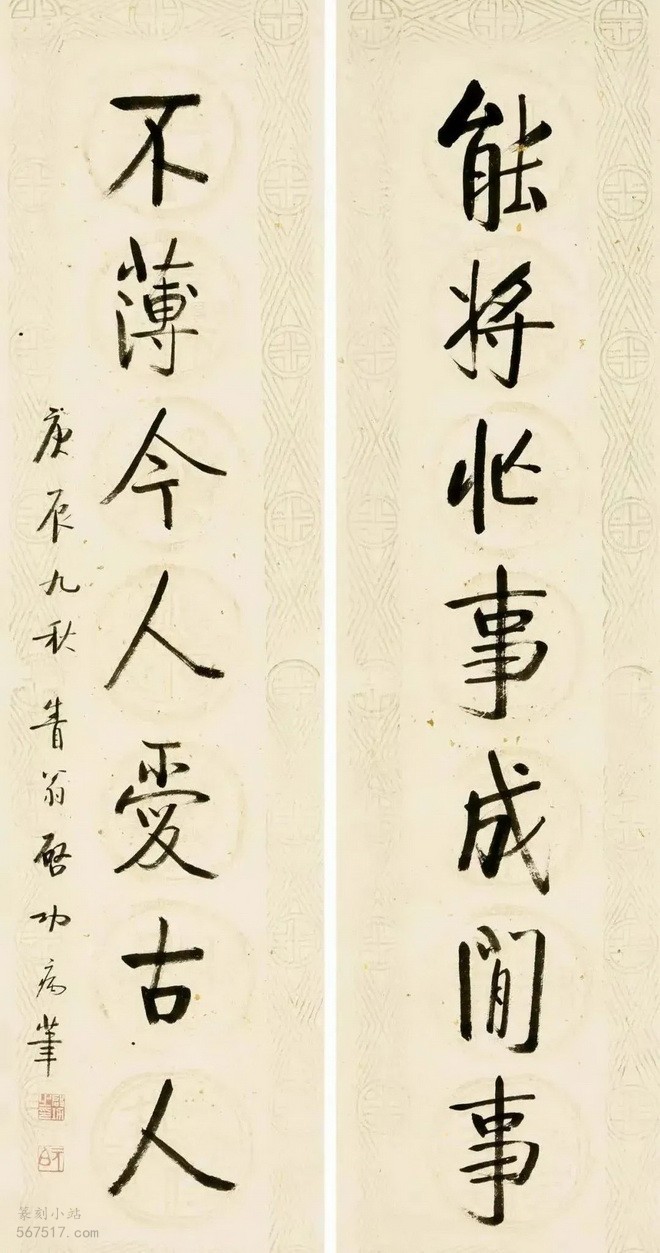 能將忙事成閒事
不薄今人愛古人
庚辰九秋 眚翁啓功病筆
篆刻小站
567517.com